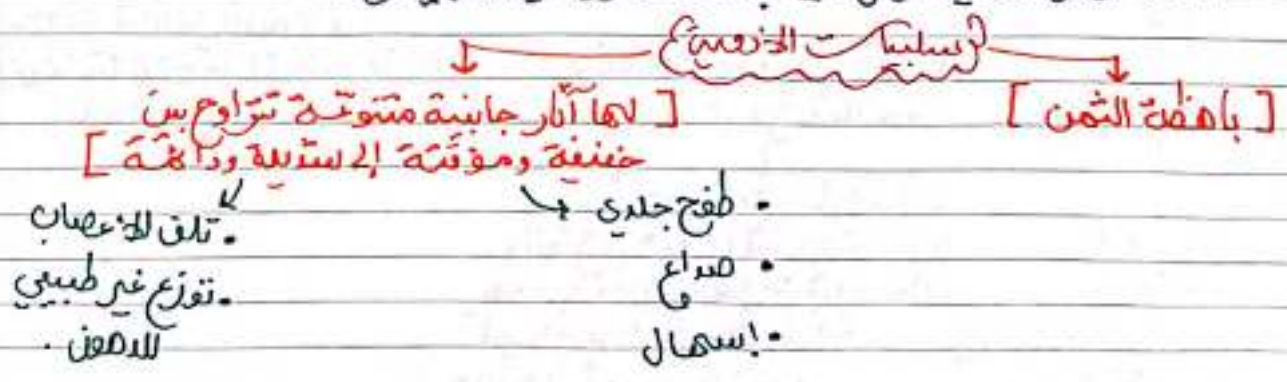 سلبيات الأدوية
[ باهظة الثمن ]
[ لها آثار جانبية متنوعة تتراوح بين
خفيفة ومؤقتة إلى شديلة ودائمة ]
• طفح جلدي
• صداع
• إسهال
• تلف الأعصاب
• توزع غير طبيعي
للدهون .